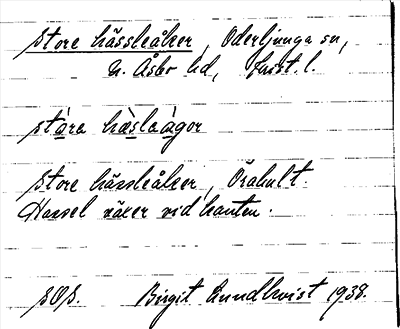 Store hässleåker, Oderljunga sn,
N. Åsbo hd, Krist. l.
stòra hæ̀slaàgor
Store hässleåker, Örahult.
Hassel växer vid kanten.
SOS. Birgit Lundkvist 1938.